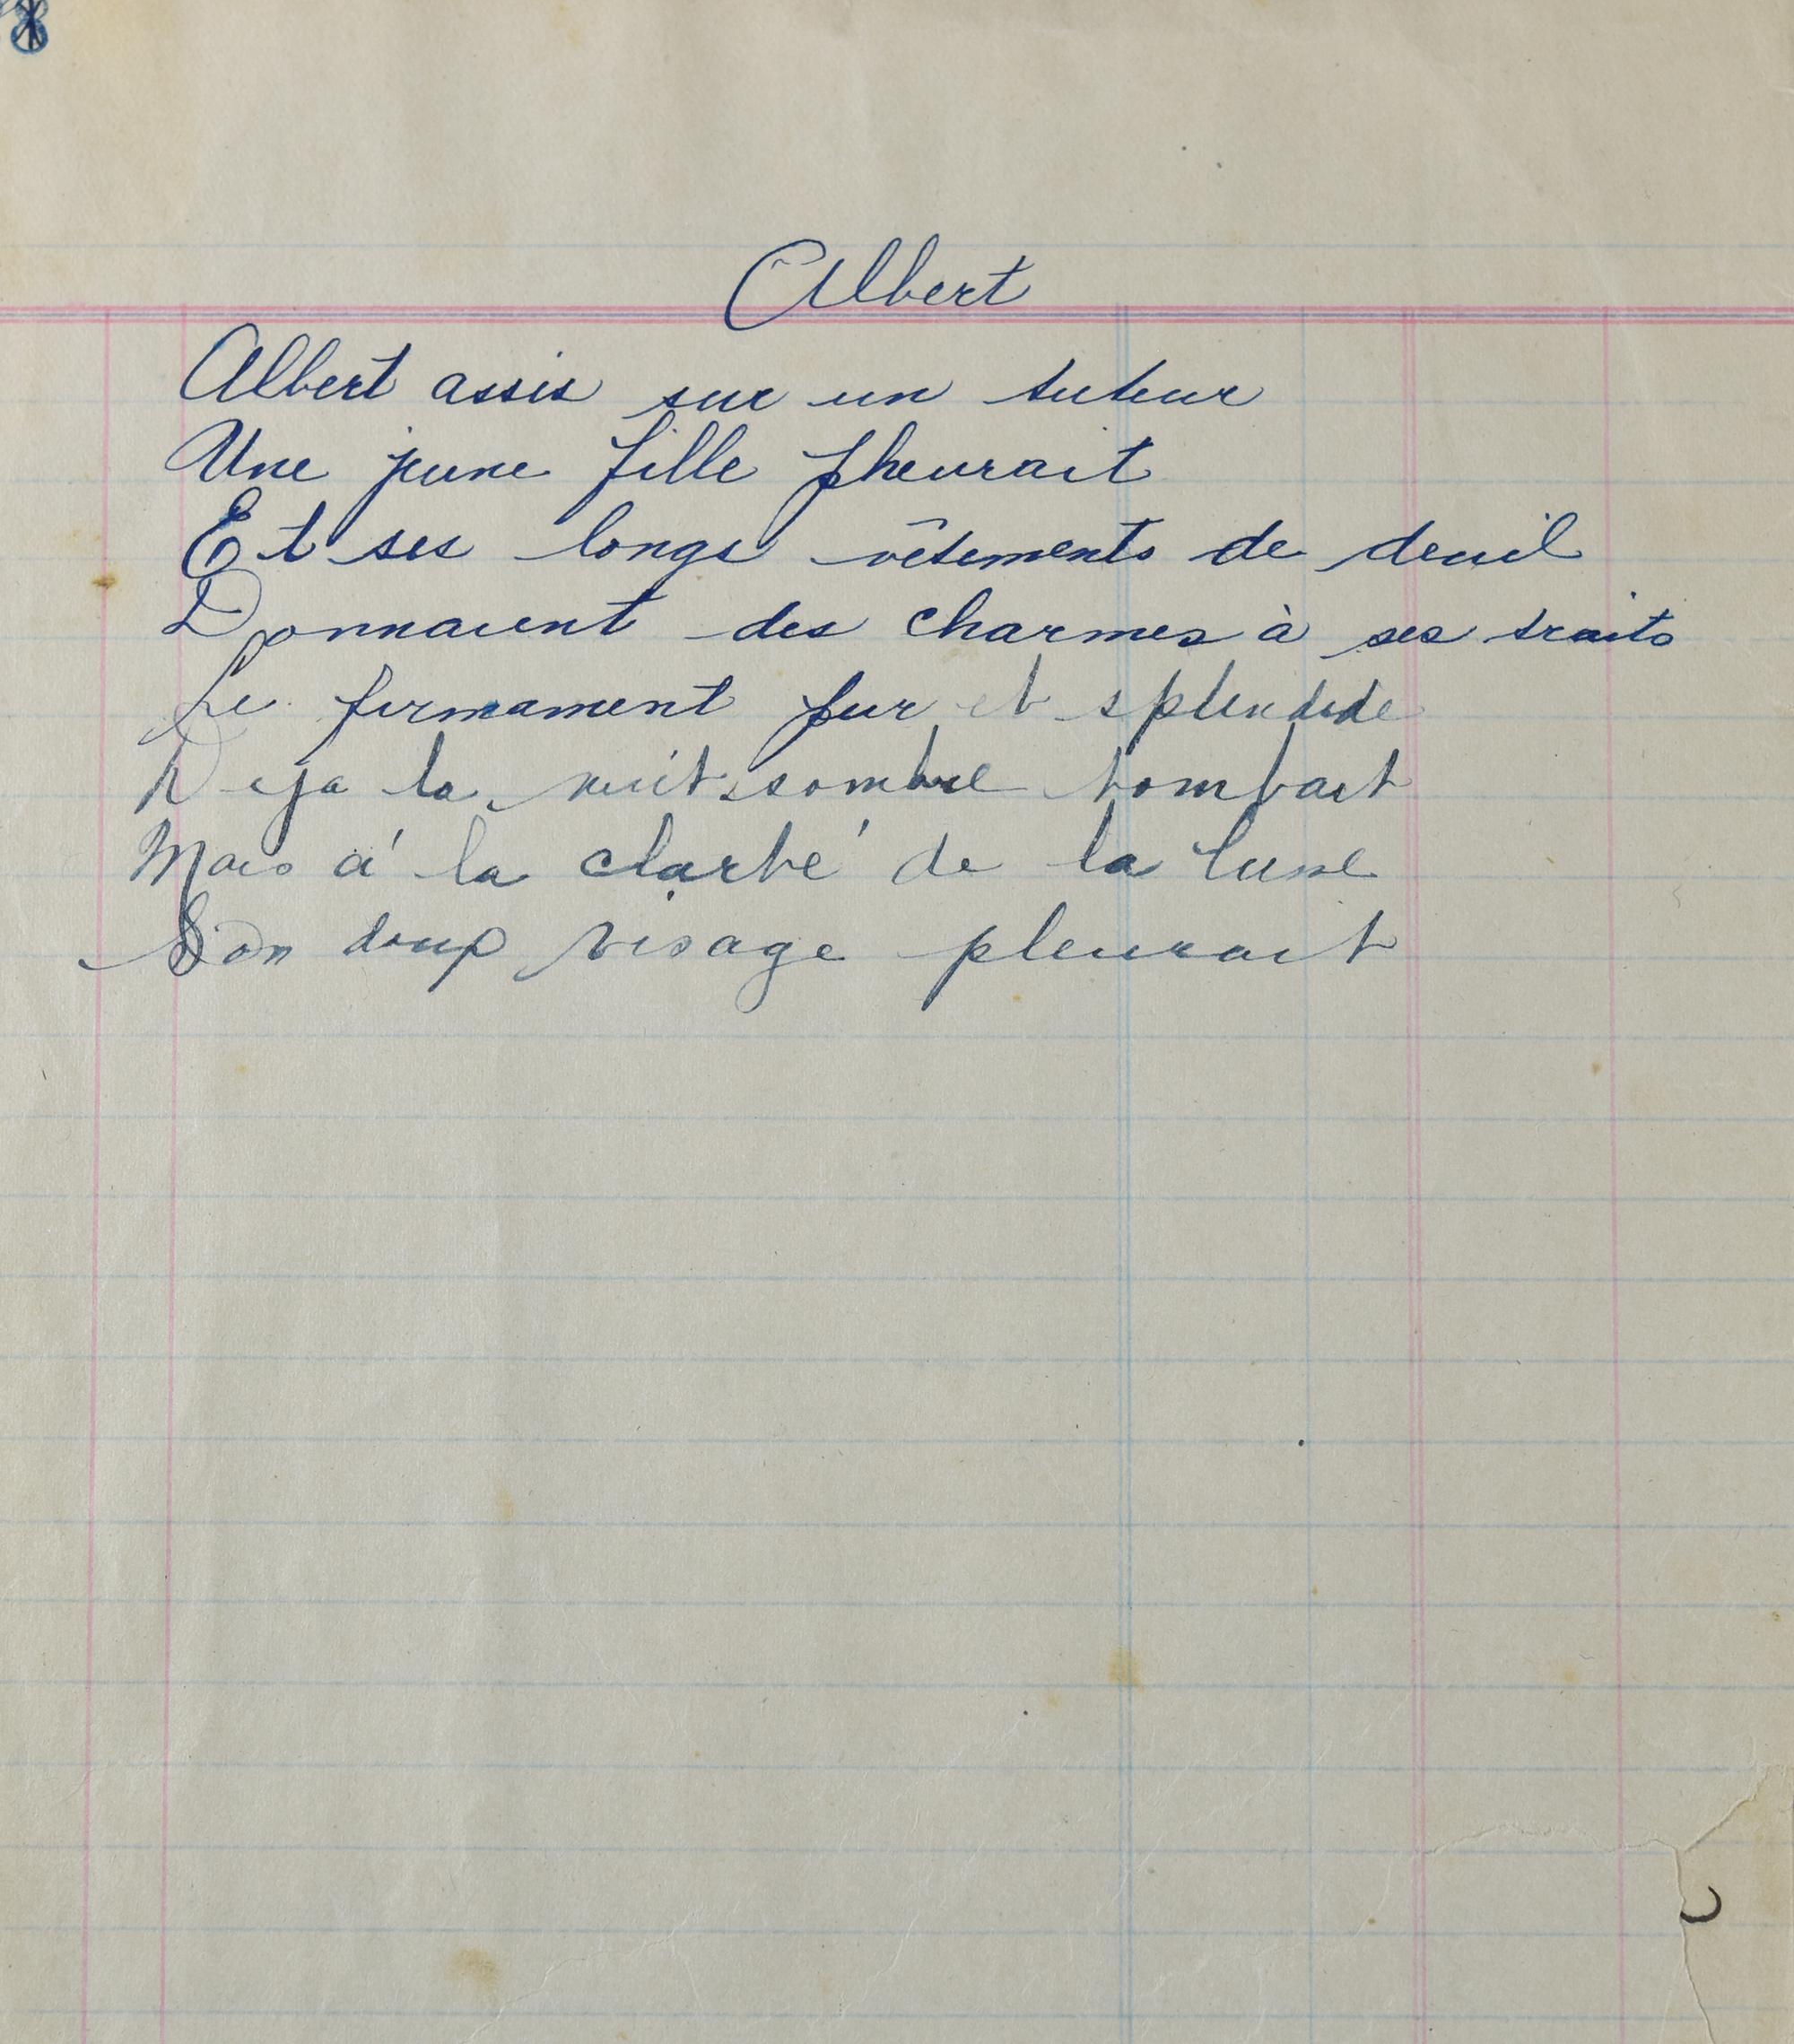 8
Albert
Albert assis sur un tuteur
Une jeune fille pheurait
Et ses longs vêtements de deuil
Donnaient des charmes à ses traits
Le firmament pur et splendide
Deja la nuit sombre tombait
Mais á la clarté de la lune
Son doup visage pleurait